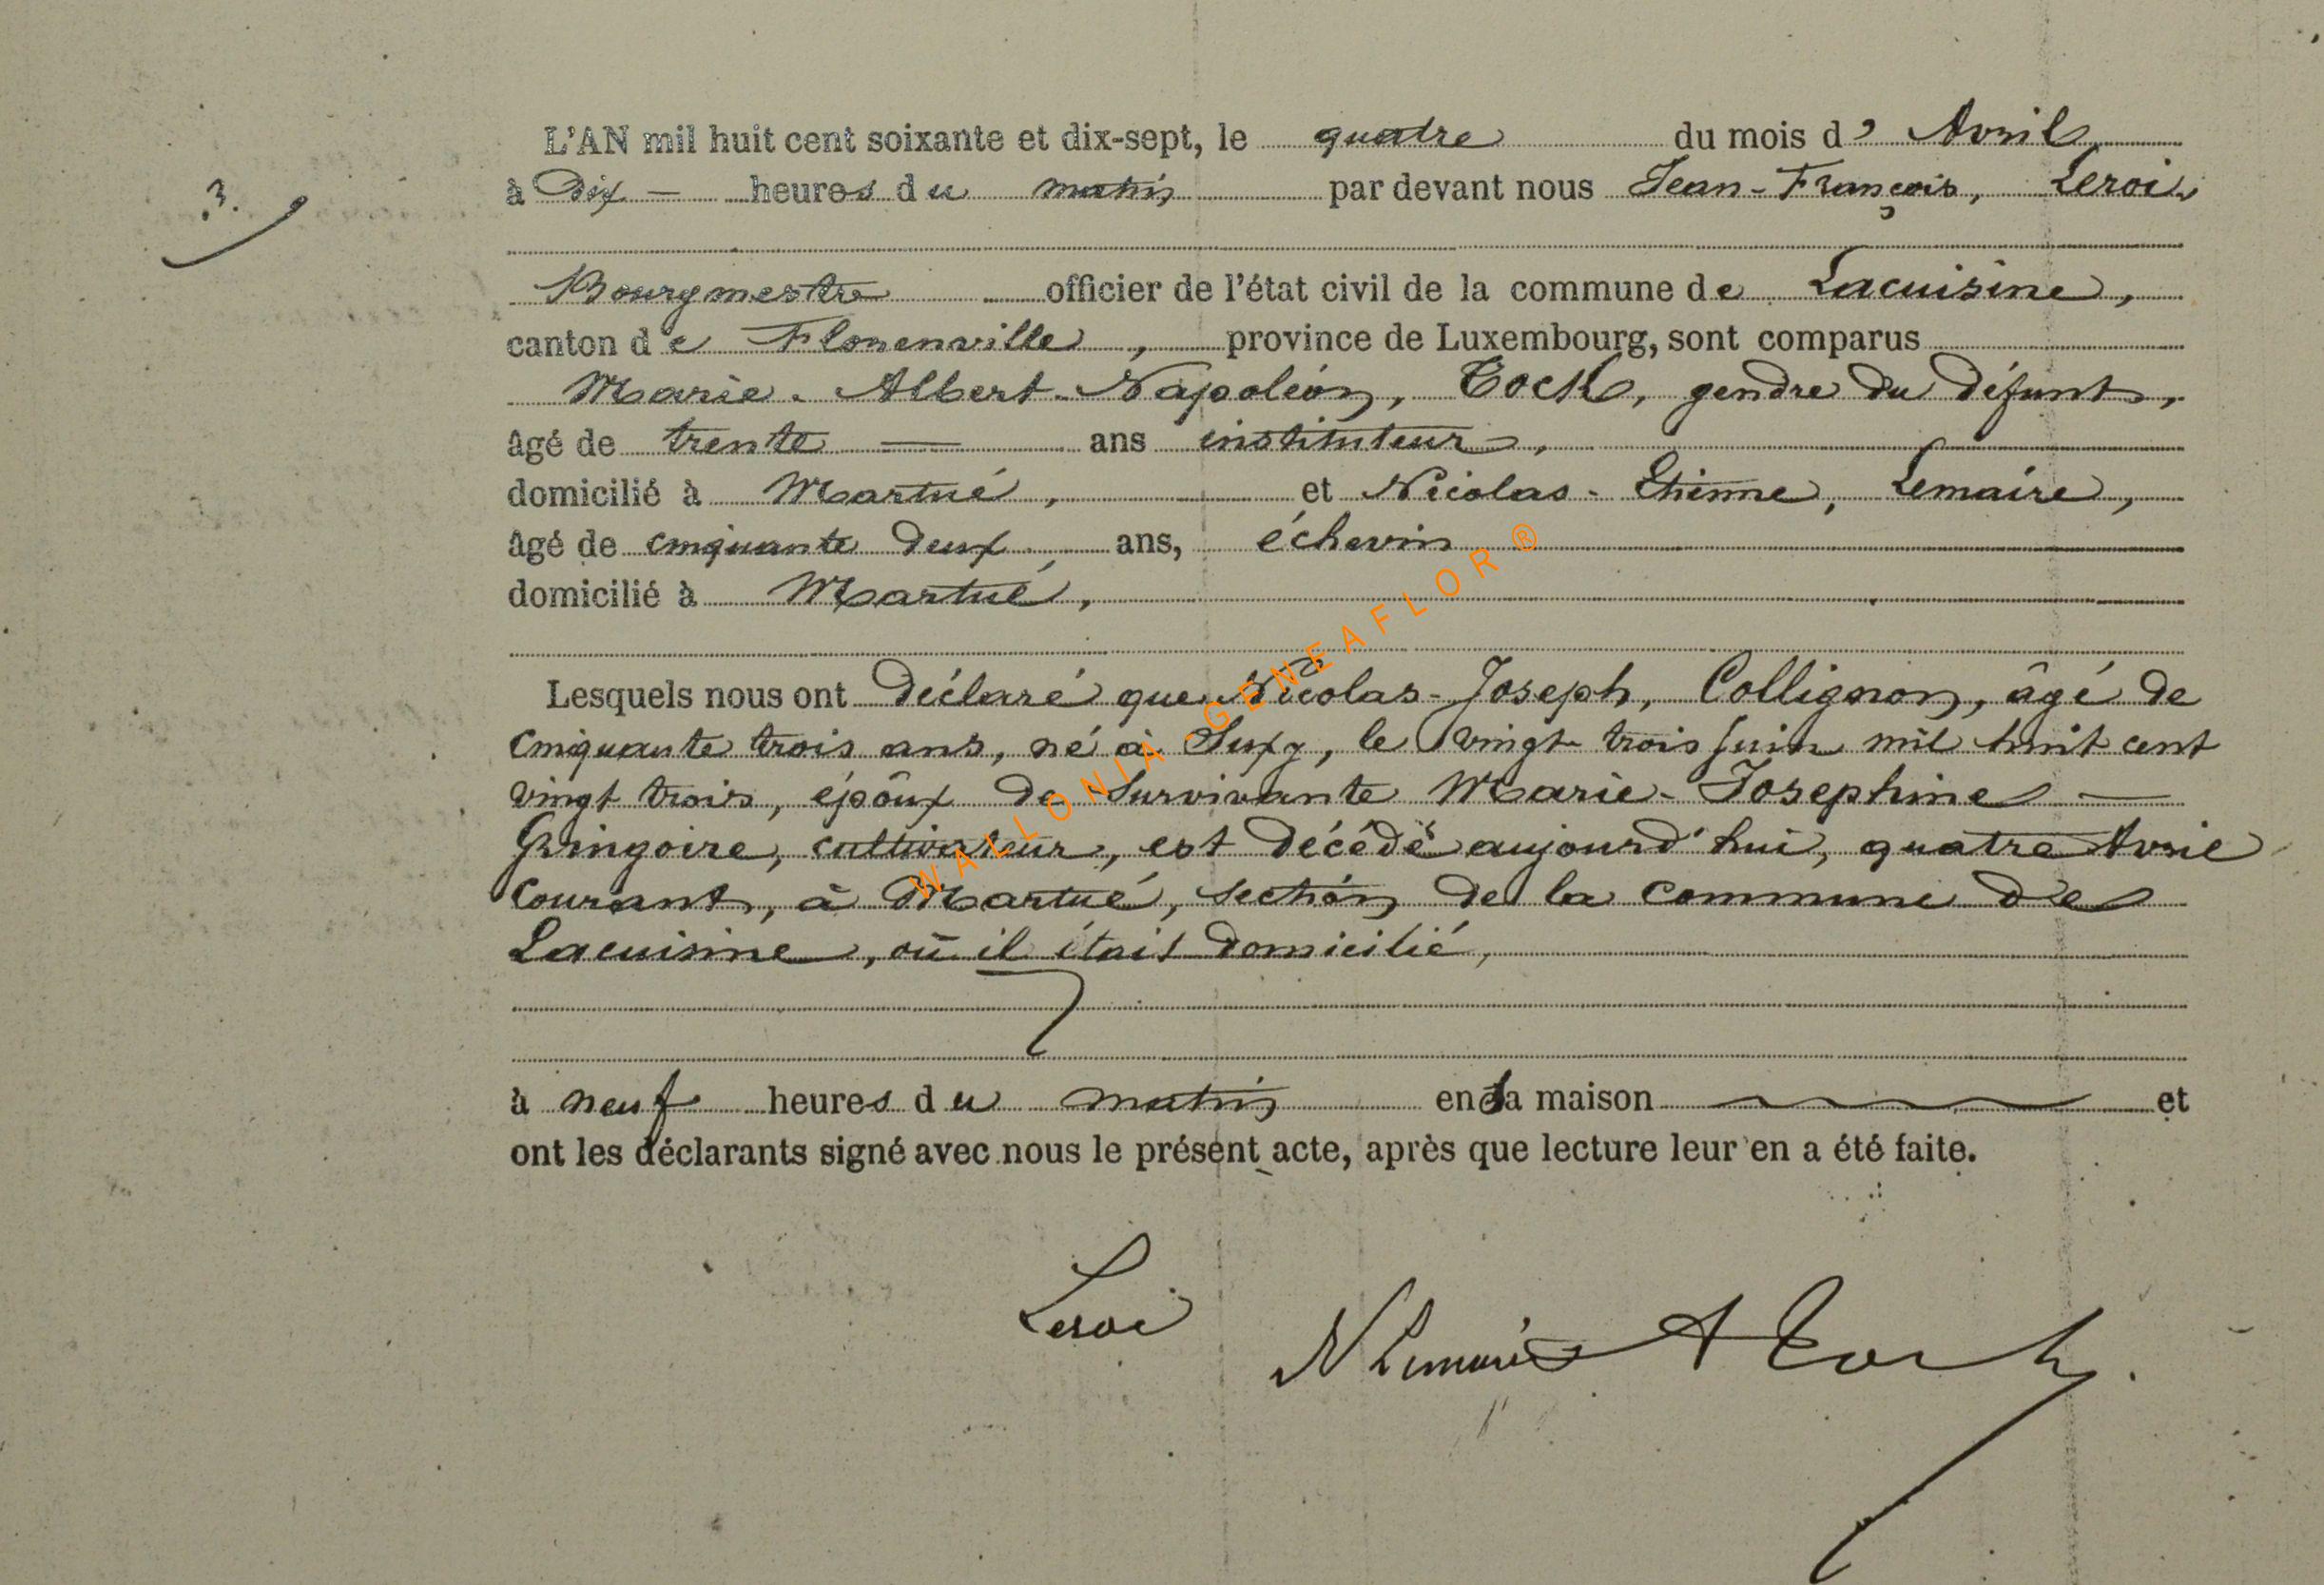 L'AN mil huit cent soixante et dix-sept, le quatre du mois d' Avril
3.
à Dix — heures du matin par devant nous Jean-François, Leroi,
Bourgmestre officier de l'état civil de la commune de Lacuisine,
canton de Florenville, province de Luxembourg, sont comparus
Marie-Albert-Napoléon, Tock, gendre du défunt,
âgé de trente — ans instituteur,
domicilié à Martué, et Nicolas-Etienne, Lemaire,
âgé de cinquante deux, ans, échevin
domicilié à Martué,
Lesquels nous ont Déclaré que Nicolas-Joseph, Collignon, âgé de
cinquante trois ans, né à Suxy, le vingt trois juin mil huit cent
vingt trois, époux de Survivante Marie-Josephine —
Gringoire, cultivateur, est Décédé aujourd'hui, quatre Avril
courant, à Martué, section de la commune de
Lacuisine, où il était Domicilié,
à neuf heures du matin en sa maison et
ont les déclarants signé avec nous le présent acte, après que lecture leur en a été faite.
Leroi
N Lemaire A Tock
WALLONIA-GENEAFLOR®